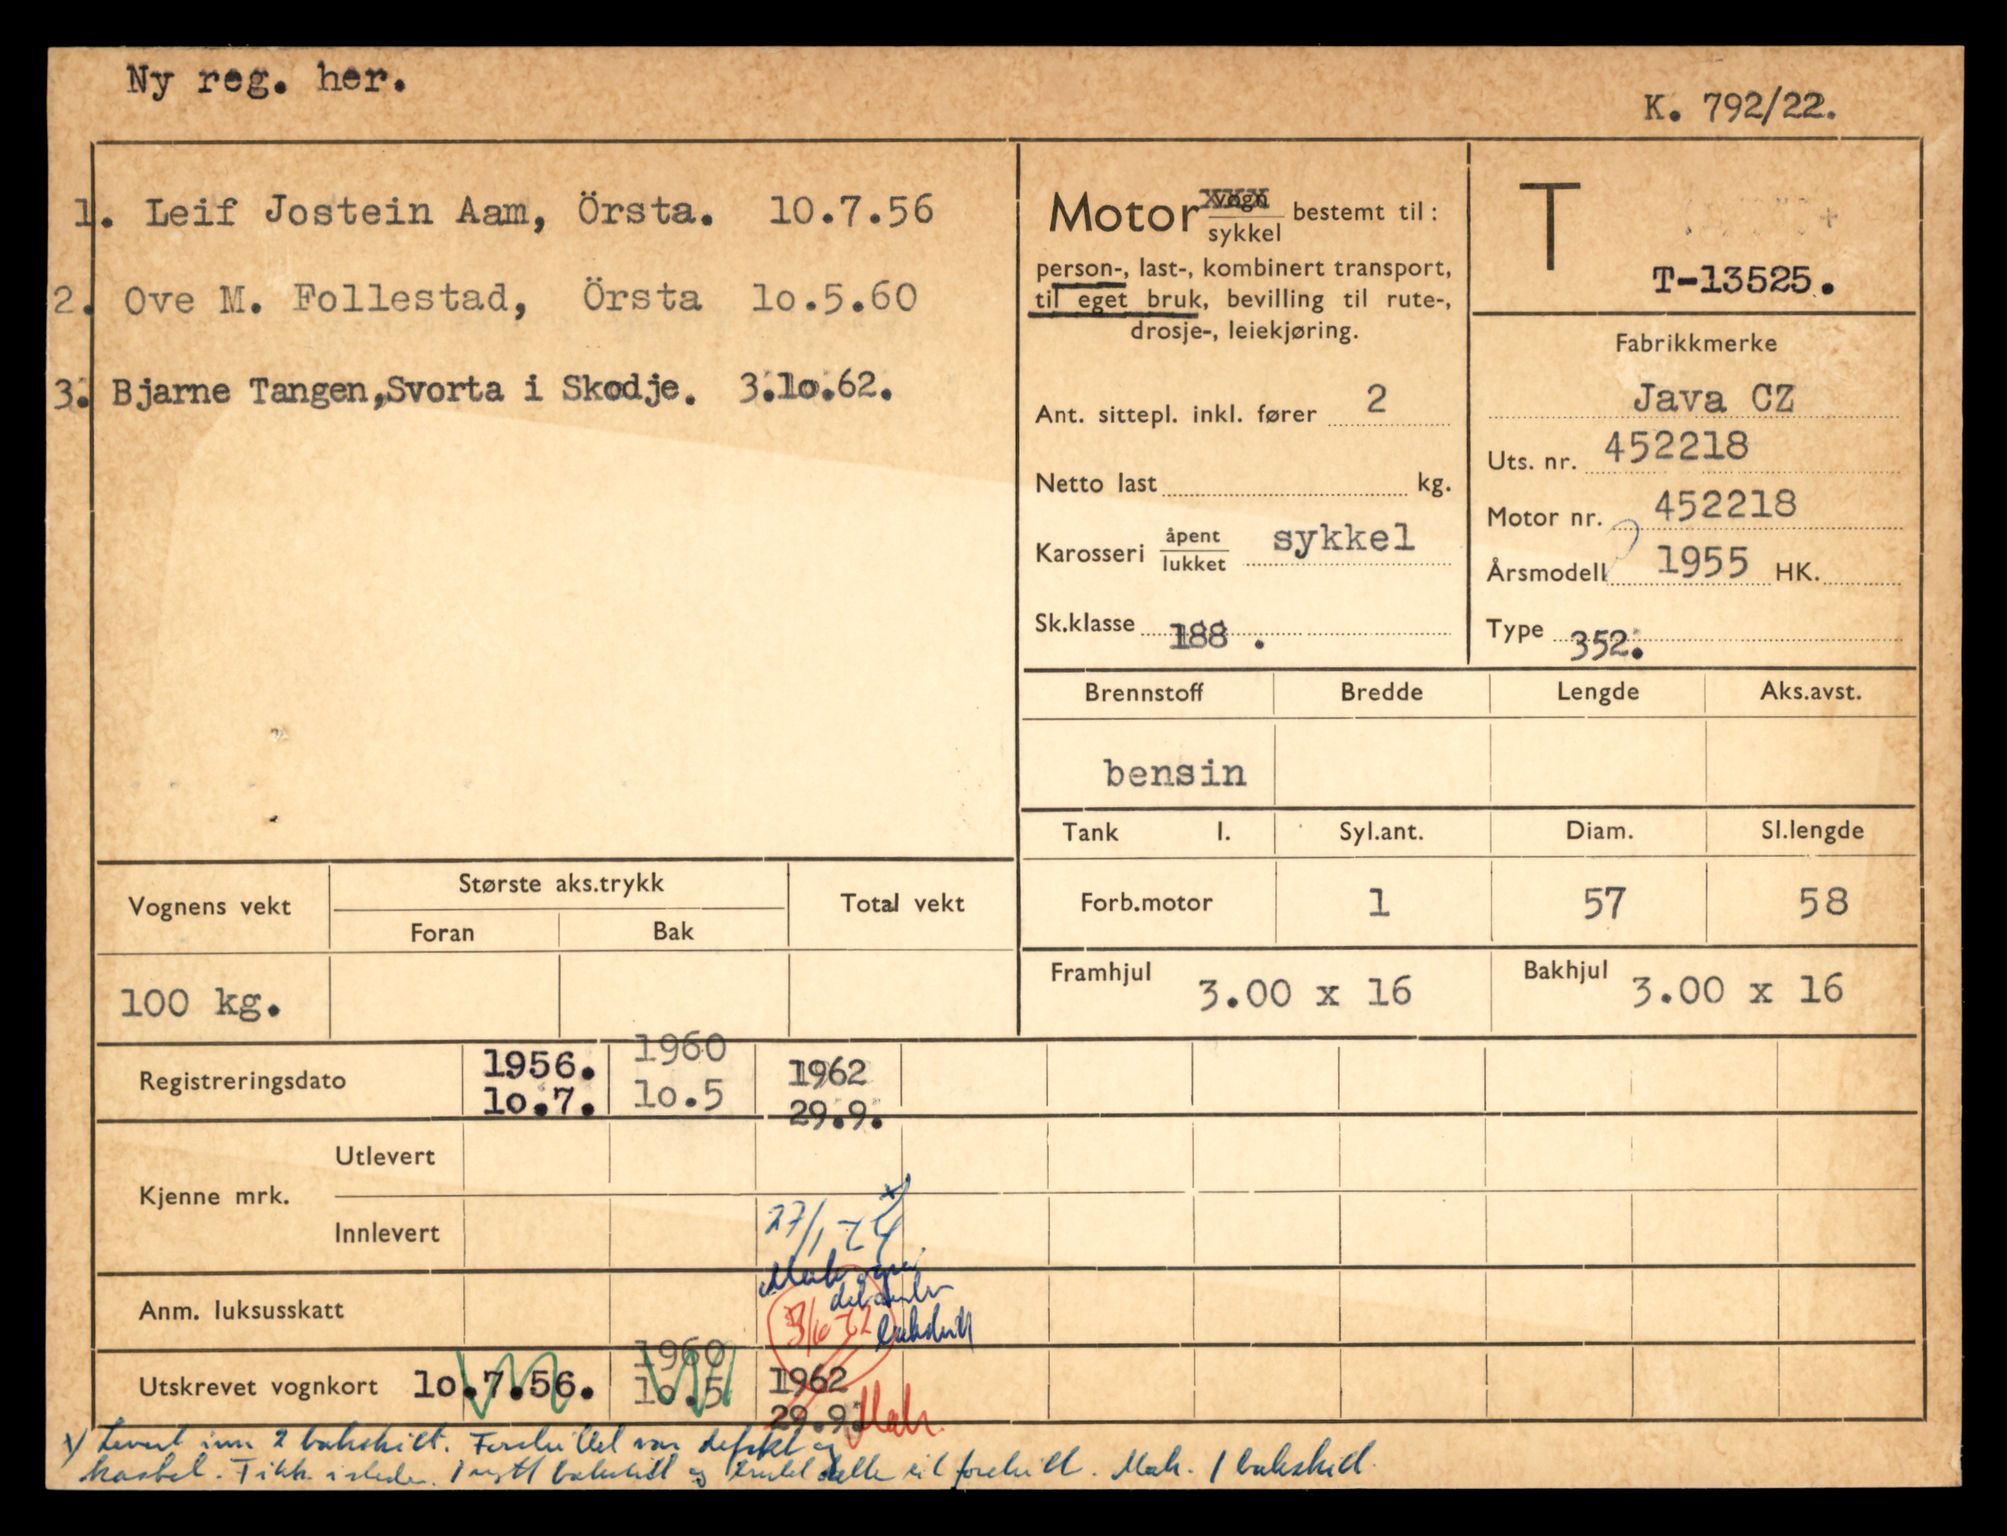 Ny reg. her.
K. 792/22.
1. Leif Jostein Aam, Örsta. 10.7.56
2. Ove M. Follestad, Örsta 1o.5.60
3. Bjarne Tangen,Svorta i Skodje. 3.1o.62.
Motor vogn bestemt til:
sykkel
person-, last-, kombinert transport,
til eget bruk, bevilling til rute-,
drosje-, leiekjøring.
Ant. sittepl. inkl. fører 2
Netto last kg.
Karosseri åpent sykkel
lukket
Sk.klasse 188 .
T
T-13525.
Fabrikkmerke
Java CZ
Uts. nr. 452218
Motor nr. 452218
Årsmodell 1955 HK.
Type 352.
Brennstoff Bredde Lengde Aks.avst.
bensin
Tank l. Syl.ant. Diam. Sl.lengde
Forb.motor 1 57 58
Framhjul 3.00 x 16 Bakhjul 3.00 x 16
Vognens vekt Største aks.trykk Total vekt
Foran Bak
100 kg.
Registreringsdato 1956. 1960 1962
1o.7. 1o.5 29.9.
Kjenne mrk. Utlevert
Innlevert 27/1
Mak
bakskilt
Anm. luksusskatt
Utskrevet vognkort 1o.7.56. 1960 1962
1o.5 29.9. Mak.
x) Levert inn 2 bakskilt. Forskiltet var defekt og
kastet. Fikk isteden 1 nytt bakskilt og til forskilt. Mak. 1 bakskilt.